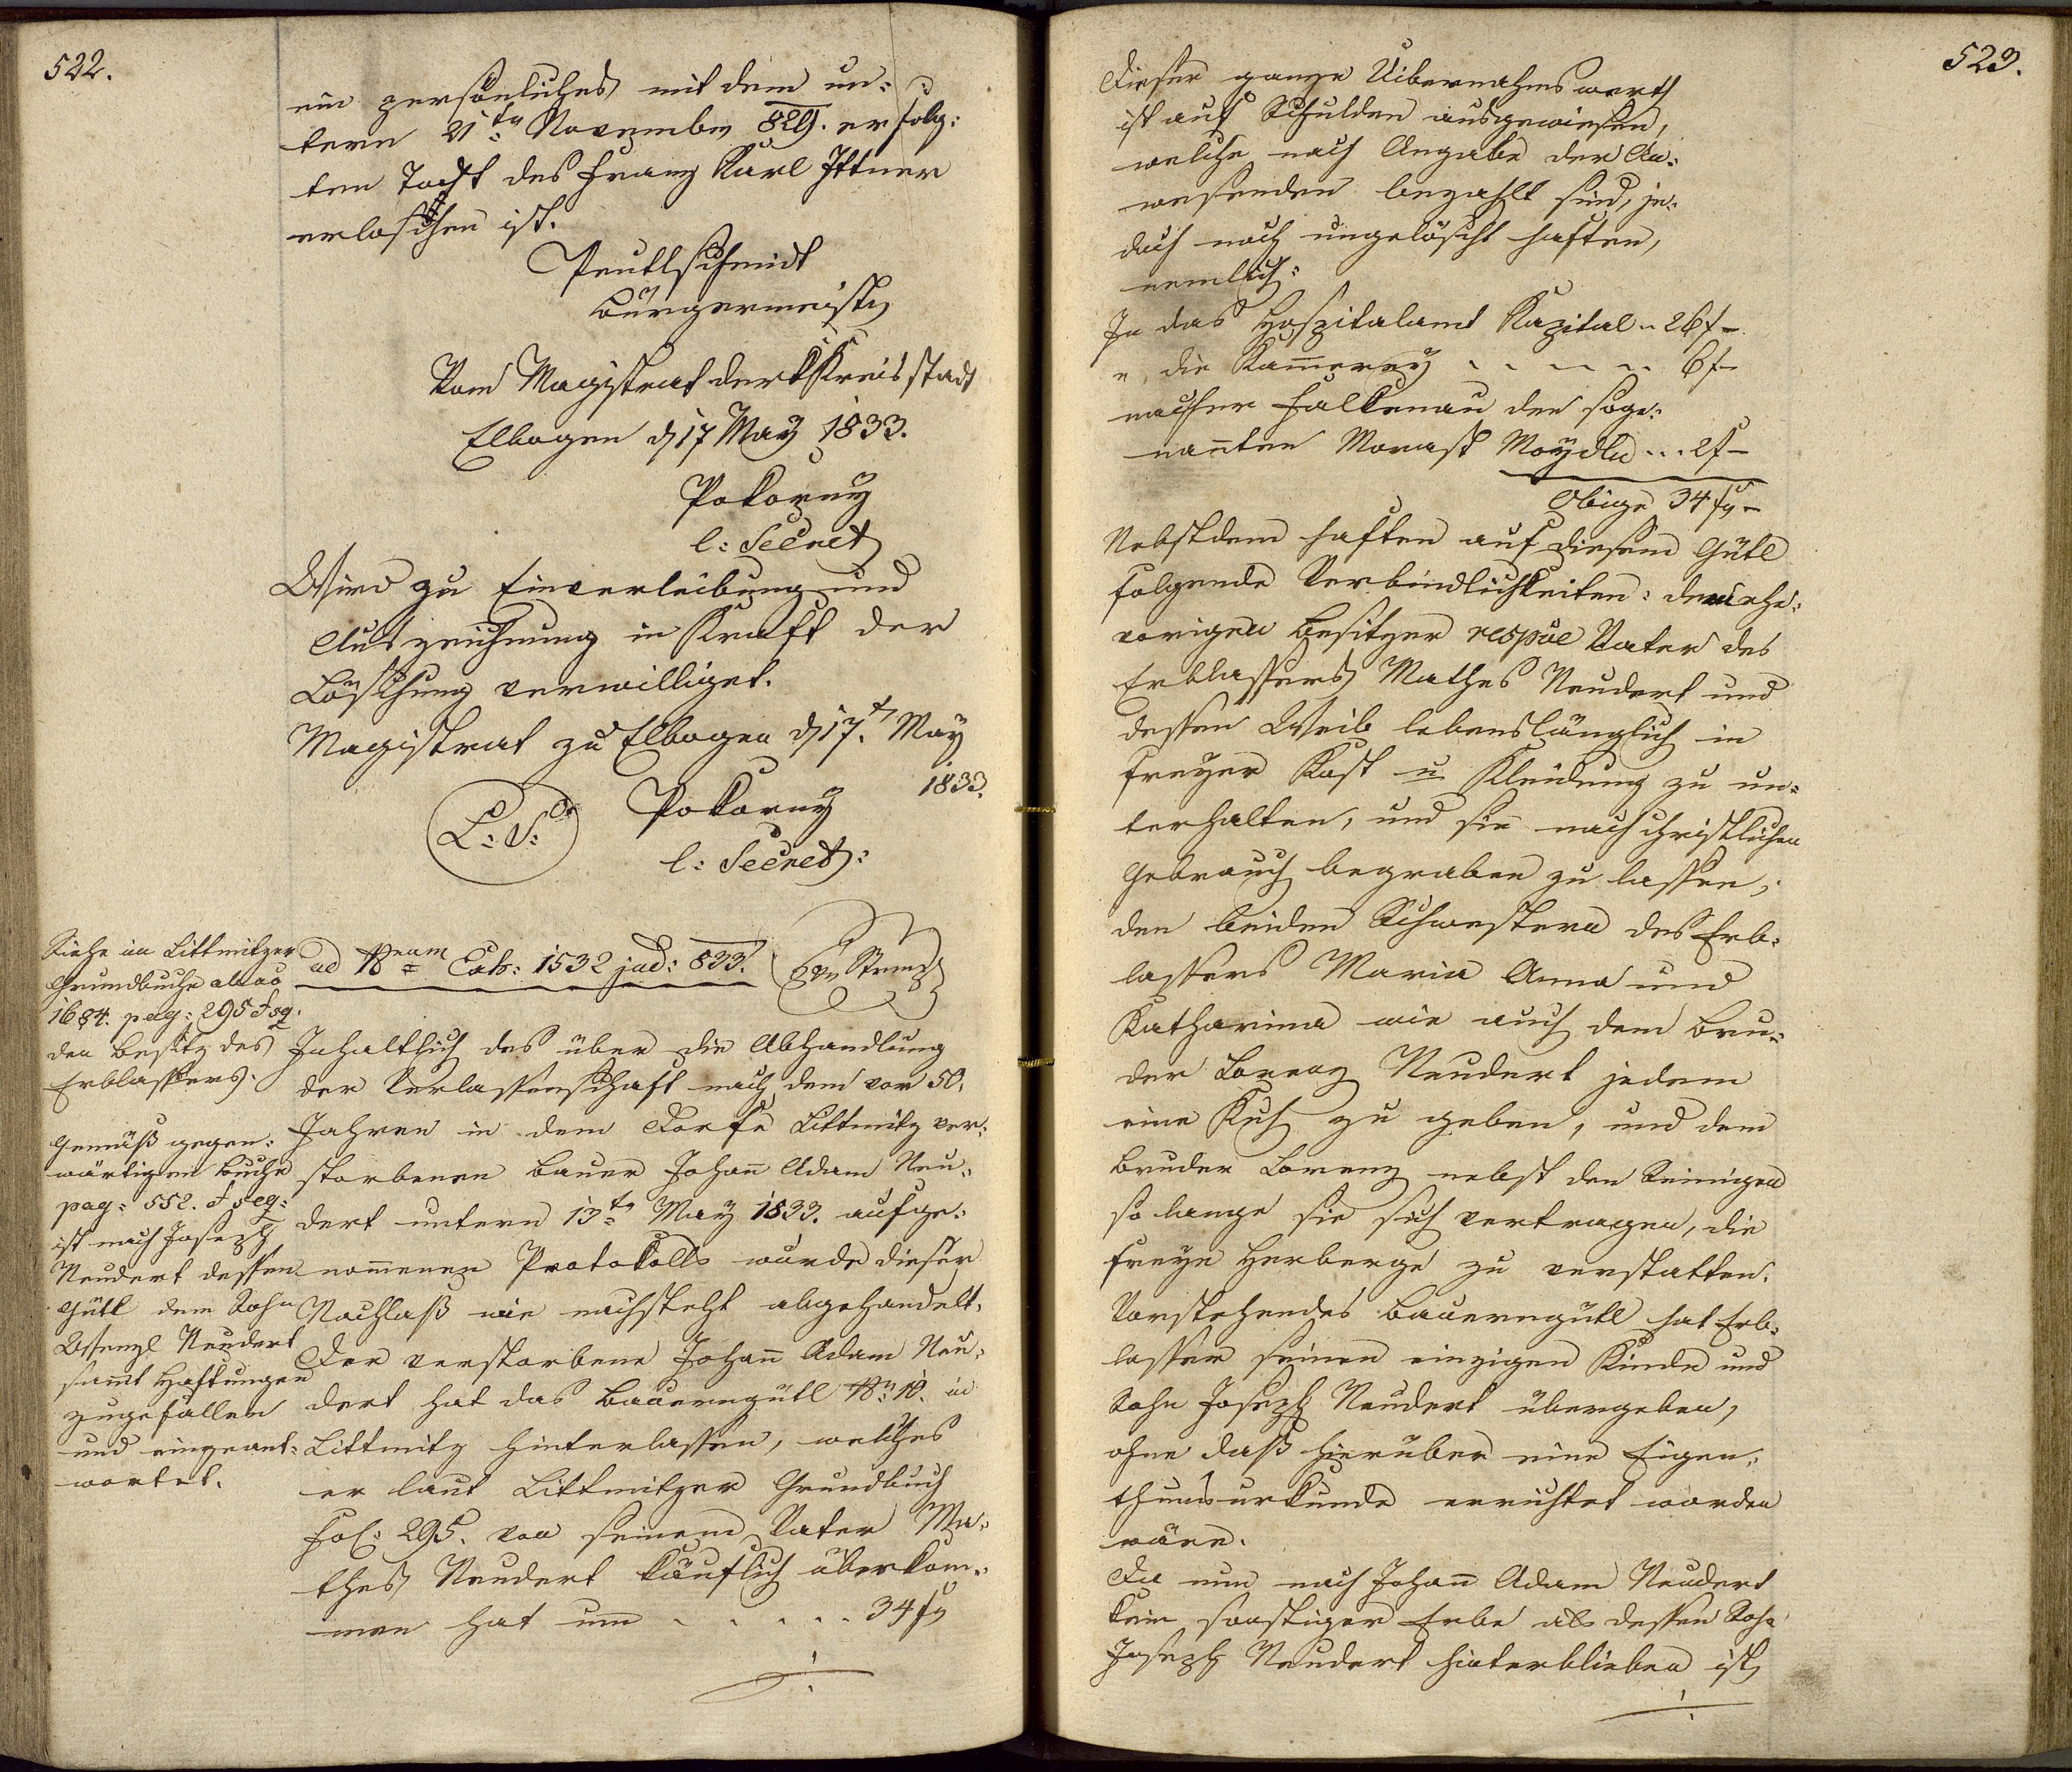 522.
ein persönliches mit dem un¬
term 21ten November 829. erfolg¬
ten Todt des Franz Karl Ittner
erloschen ist.
Peutlschmidt
Bürgermeister
Vom Magistrat der k Kreisstadt
Elbogen d 17 May 1833.
Pokorny
l: Secret
Wird zu Einverleibung und
Auszeichnung in Kraft der
Löschung verwilliget.
Magistrat zu Elbogen d 17t. May
1833.
L: S: Pokorny
l: Secret:
Siehe im Littmitzer
Grundbuche ab ao
1684. pag: 295 & sq.
den Besitz des
Erblassers.
Gemäß gegen¬
wärtigen Buche
pag: 552. & seq:
ist nach Joseph
Neudert dessen
Gütl dem Sohn
Wenzl Neudert
sammt Haftungen
zugefallen
und eingeant¬
wortet.
ad Num Exh: 1532 jud: 833.
Inhaltlich des über die Abhandlung
der Verlassenschaft nach dem vor 50.
Jahren in dem Dorfe Littmitz ver¬
storbenen Bauer Johann Adam Neu¬
dert unterm 13ten May 1833. aufge¬
nommenen Protokolls wurde dieser
Nachlaß wie nachsteht abgehandelt.
Der verstorbene Johann Adam Neu¬
dert hat das Bauerngütl No 10. in
Littmitz hinterlassen, welches
er laut Littmitzer Grundbuch
Fol: 295. von seinem Vater Ma¬
thes Neudert käuflich überkom¬
men hat um . . . . . 34 fr
523.
Dieser ganze Uibernahmswerth
ist auf Schulden ausgewiesen,
welche nach Angabe der An¬
wesenden bezahlt sind, je¬
doch noch ungelöscht haften,
nemlich:
In das Hospitalamt Kapital .. 26 f –
" die Kammerey . . . . . 6 f –
nacher Falkenau den soge¬
nannten Morast Moydln ... 2 f –
Obige 34 fr –
Nebstdem haften auf diesem Gütl
folgende Verbindlichkeiten: den ehe¬
vorigen Besitzer respve Vater des
Erblassers Mathes Neudert und
dessen Weib lebenslänglich in
freyer Kost u Kleidung zu un¬
terhalten, und sie nach christlichen
Gebrauch begraben zu lassen,
den beiden Schwestern des Erb¬
lassers Maria Anna und
Katharina wie auch dem Bru¬
der Lorenz Neudert jedem
eine Kuh zu geben, und dem
Bruder Lorenz nebst den Seinigen
so lange sie sich vertragen, die
freye Herberge zu verstatten.
Vorstehendes Bauerngütl hat Erb¬
lasser seinen einzigen Kinde und
Sohn Joseph Neudert übergeben,
ohne daß hierüber eine Eigen¬
thumsurkunde errichtet worden
wäre.
Da nun nach Johann Adam Neudert
kein sonstiger Erbe als dessen Sohn
Joseph Neudert hinterblieben ist,